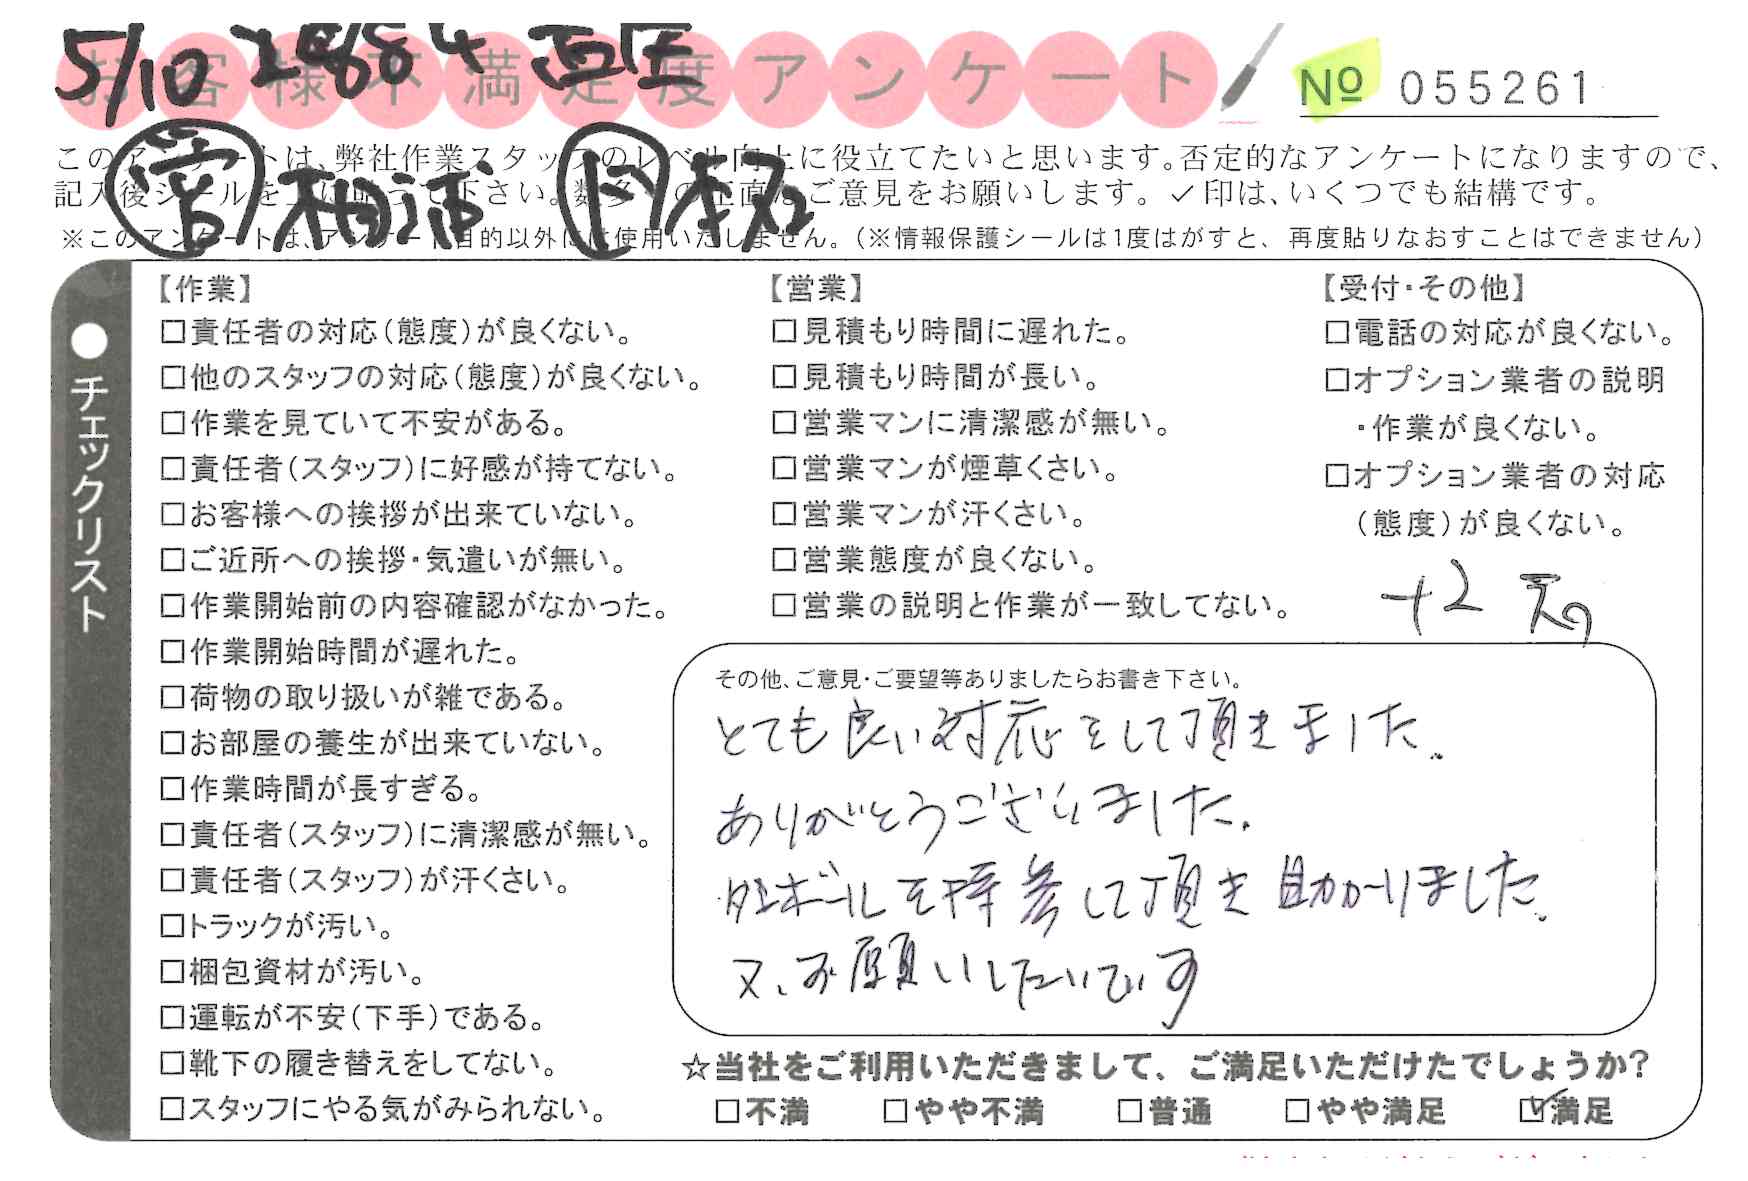 お客様不満足度アンケート
5/10 2884
№ 055261
このアンケートは、弊社作業スタッフのレベル向上に役立てたいと思います。否定的なアンケートになりますので、
記入後シールを上に貼って下さい。数多くの正直なご意見をお願いします。✓印は、いくつでも結構です。
※このアンケートは、アンケート目的以外には使用いたしません。（※情報保護シールは1度はがすと、再度貼りなおすことはできません）
営 相浦
●チェックリスト
【作業】
□責任者の対応（態度）が良くない。
□他のスタッフの対応（態度）が良くない。
□作業を見ていて不安がある。
□責任者（スタッフ）に好感が持てない。
□お客様への挨拶が出来ていない。
□ご近所への挨拶・気遣いが無い。
□作業開始前の内容確認がなかった。
□作業開始時間が遅れた。
□荷物の取り扱いが雑である。
□お部屋の養生が出来ていない。
□作業時間が長すぎる。
□責任者（スタッフ）に清潔感が無い。
□責任者（スタッフ）が汗くさい。
□トラックが汚い。
□梱包資材が汚い。
□運転が不安（下手）である。
□靴下の履き替えをしてない。
□スタッフにやる気がみられない。
【営業】
□見積もり時間に遅れた。
□見積もり時間が長い。
□営業マンに清潔感が無い。
□営業マンが煙草くさい。
□営業マンが汗くさい。
□営業態度が良くない。
□営業の説明と作業が一致してない。
【受付・その他】
□電話の対応が良くない。
□オプション業者の説明
・作業が良くない。
□オプション業者の対応
（態度）が良くない。
+2
その他、ご意見・ご要望等ありましたらお書き下さい。
とても良い対応をして頂きました。
ありがとうございました。
ダンボールを持参して頂き助かりました。
又、お願いしたいです
☆当社をご利用いただきまして、ご満足いただけたでしょうか？
□不満 □やや不満 □普通 □やや満足 ☑満足